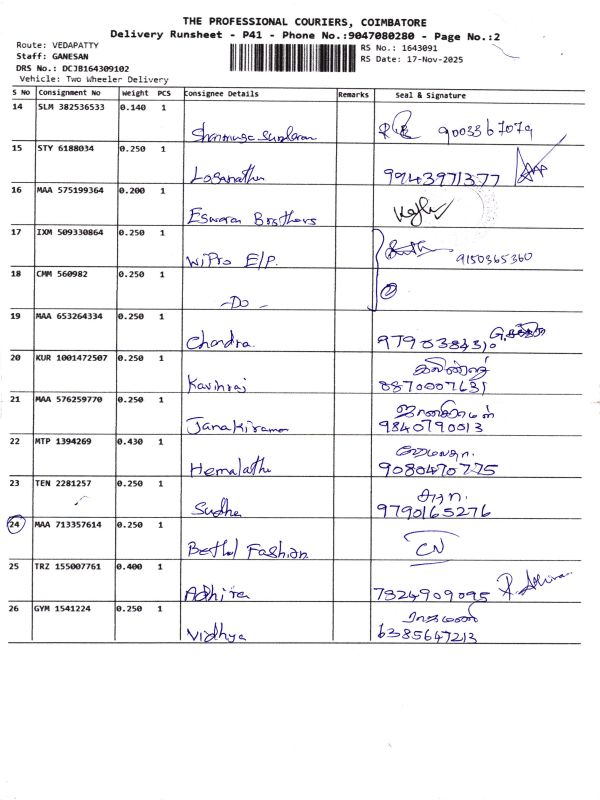 THE PROFESSIONAL COURIERS, COIMBATORE
Delivery Runsheet - P41 - Phone No.:9047080280 - Page No.:2
Route: VEDAPATTY
Staff: GANESAN
DRS No.: DCJB164309102
Vehicle: Two Wheeler Delivery
RS No.: 1643091
RS Date: 17-Nov-2025
S No Consignment No Weight PCS Consignee Details Remarks Seal & Signature
14 SLM 382536533 0.140 1
9003367079
15 STY 6188034 0.250 1
Loganathan 9943971377
16 MAA 575199364 0.200 1
Eswaran Brothers
17 IXM 509330864 0.250 1
Wipro E/P. 9150365360
18 CMM 560982 0.250 1
-Do- 2
19 MAA 653264334 0.250 1
Chandra.
20 KUR 1001472507 0.250 1
Kavinraj 8870007631
21 MAA 576259770 0.250 1
Janakiraman 9840790013
22 MTP 1394269 0.430 1
Hemalatha 9080470775
23 TEN 2281257 0.250 1
சுதா.
Sudha 9790165276
24 MAA 713357614 0.250 1
Bethel Fashion CN
25 TRZ 155007761 0.400 1
Adhira 7824909095
26 GYM 1541224 0.250 1
Vidhya 6385647213